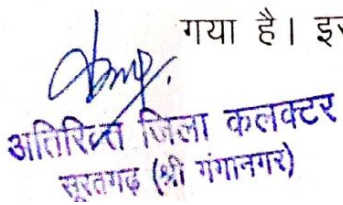 गया है। इस
अतिरिक्त जिला कलक्टर
सूरतगढ़ (श्री गंगानगर)